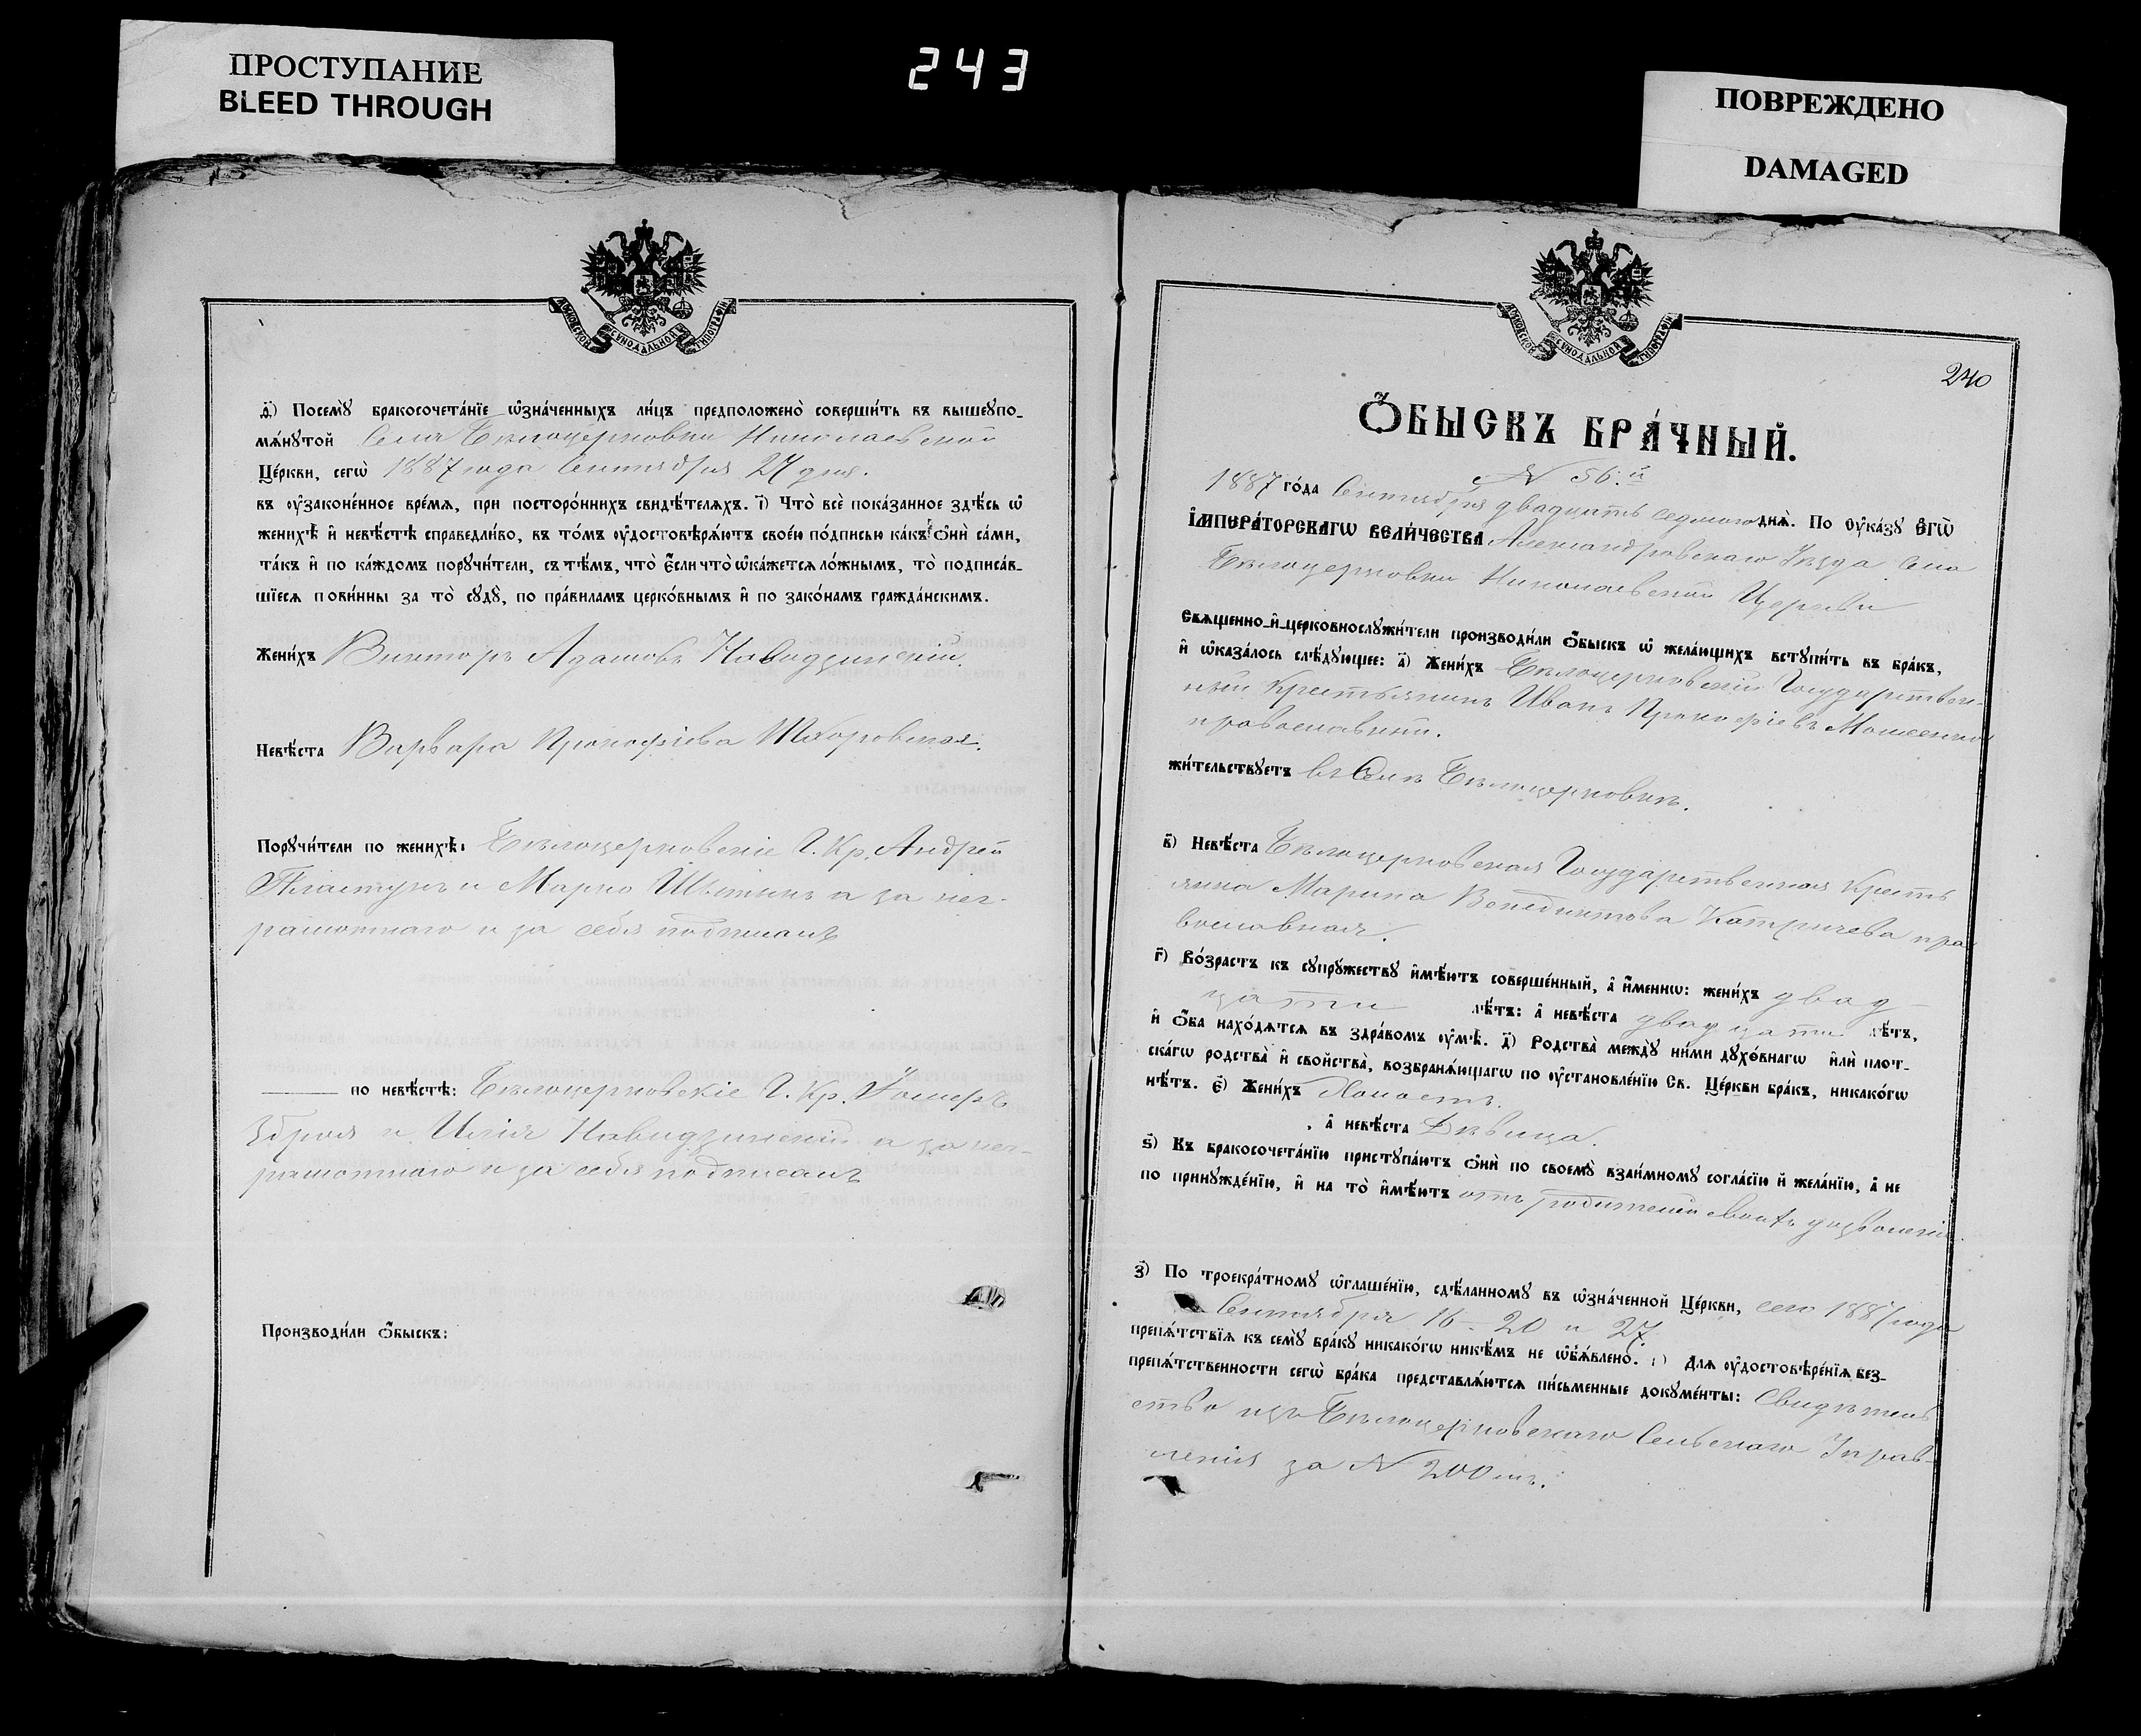 ПРОСТУПАНИЕ
BLEED THROUGH
243
ПОВРЕЖДЕНО
DAMAGED
МОСКОВСКОЙ СѴНОДАЛЬНОЙ ТИПОГРАФІИ
д҃і) Посемꙋ̀ бракосочета́нїе ѡ҆зна́ченныхъ ли́цъ предположено̀ соверши́ть въ вышеꙋпо-
мѧ́нꙋтой Села Бѣлоцерковки Николаевской
Це́ркви, сегѡ̀ 1887 года Сентября 27 дня.
въ ᲂу҆законе́нное вре́мѧ, при посторо́ннихъ свидѣ́телѧхъ. і҃) Что̀ всѐ пока́занное здѣ́сь ѡ҆
женихѣ̀ и҆ невѣ́стѣ справедли́во, въ то́мъ ᲂу҆достовѣрѧ́ютъ свое́ю по́дписью ка́къ ѻ҆нѝ са́ми,
та́къ и҆ по ка́ждомъ порꙋчи́тели, съ тѣ́мъ, что̀ є҆́сли что̀ ѡ҆ка́жетсѧ ло́жнымъ, то̀ подписа́в-
шїесѧ пови́нны за то̀ сꙋдꙋ̀, по пра́виламъ церко́внымъ и҆ по зако́намъ гражда́нскимъ.
Жени́хъ Викторъ Адамовъ Навидзинскій.
Невѣ́ста Варвара Прокофіева
Порꙋчи́тели по женихѣ̀: Бѣлоцерковскіе Г. Кр. Андрей
Пластунъ и Марко а за нег-
рамотнаго и за себя подписалъ
по невѣ́стѣ: Бѣлоцерковскіе Г. Кр.
и Илія Навидзинскій а за нег-
рамотнаго и за себя подписалъ
Производи́ли ѻ҆́быскъ:
МОСКОВСКОЙ СѴНОДАЛЬНОЙ ТИПОГРАФІИ
240
Ѻ҆́БЫСКЪ БРА́ЧНЫЙ.
N 56:й
1887 го́да Сентября двадцать седьмого днѧ̀. По ᲂу҆ка́зꙋ є҆гѡ̀
і҆мпера́торскагѡ вели́чества Александровскаго Уѣзда Села
Бѣлоцерковки Николаевской Церкви
свѧще́нно-и҆-церковнослꙋжи́тели производи́ли ѻ҆́быскъ ѡ҆ жела́ющихъ встꙋпи́ть въ бра́къ,
и҆ ѡ҆каза́лось слѣ́дꙋющее: а҃) Жени́хъ Бѣлоцерковскій Государствен-
ный Крестьянинъ Иванъ Прокофіевъ
православный.
жи́тельствꙋетъ въ Селѣ Бѣлоцерковкѣ.
в҃) Невѣ́ста Бѣлоцерковская Государственная Кресть
янка Марина Венедиктова Катричева пра
вославная.
г҃) Во́зрастъ къ сꙋпрꙋжествꙋ и҆мѣ́ютъ соверше́нный, а҆ и҆́меннѡ: жени́хъ двад-
цати лѣ́тъ: а҆ невѣ́ста двадцати лѣ́тъ,
и҆ ѻ҆́ба нахо́дѧтсѧ въ здра́вомъ ᲂу҆мѣ̀. д҃) Родства̀ междꙋ̀ ни́ми дꙋхо́внагѡ и҆лѝ плот-
ска́гѡ родства̀ и҆ сво́йства̀, возбранѧ́ющагѡ по ᲂу҆становле́нїю Св. Це́ркви бра́къ, никако́гѡ
нѣ́тъ. є҃) Жени́хъ Холостъ.
, а҆ невѣ́ста Дѣвица.
ѕ҃) Къ бракосочета́нїю пристꙋпа́ютъ ѻ҆нѝ по своемꙋ̀ взаи́мномꙋ согла́сїю и҆ жела́нїю, а҆ не
по принꙋжде́нїю, и҆ на то̀ и҆мѣ́ютъ отъ родителей своихъ дозволеніе.
з҃) По троекра́тномꙋ ѡ҆глаше́нїю, сдѣ́ланномꙋ въ ѡ҆зна́ченной Це́ркви, сего 1887 года
Сентября 16 - 20 и 27.
препѧ́тствїѧ къ семꙋ̀ бра́кꙋ никако́гѡ никѣ́мъ не ѡ҆б̾ѧ́влено. и҃) Длѧ ᲂу҆достовѣре́нїѧ без-
препѧ́тственности сегѡ̀ бра́ка представлѧ́ютсѧ пи́сьменные докꙋме́нты: Свидѣтель
ство изъ Бѣлоцерковскаго Сельскаго Управ-
ленія за N 200мъ.